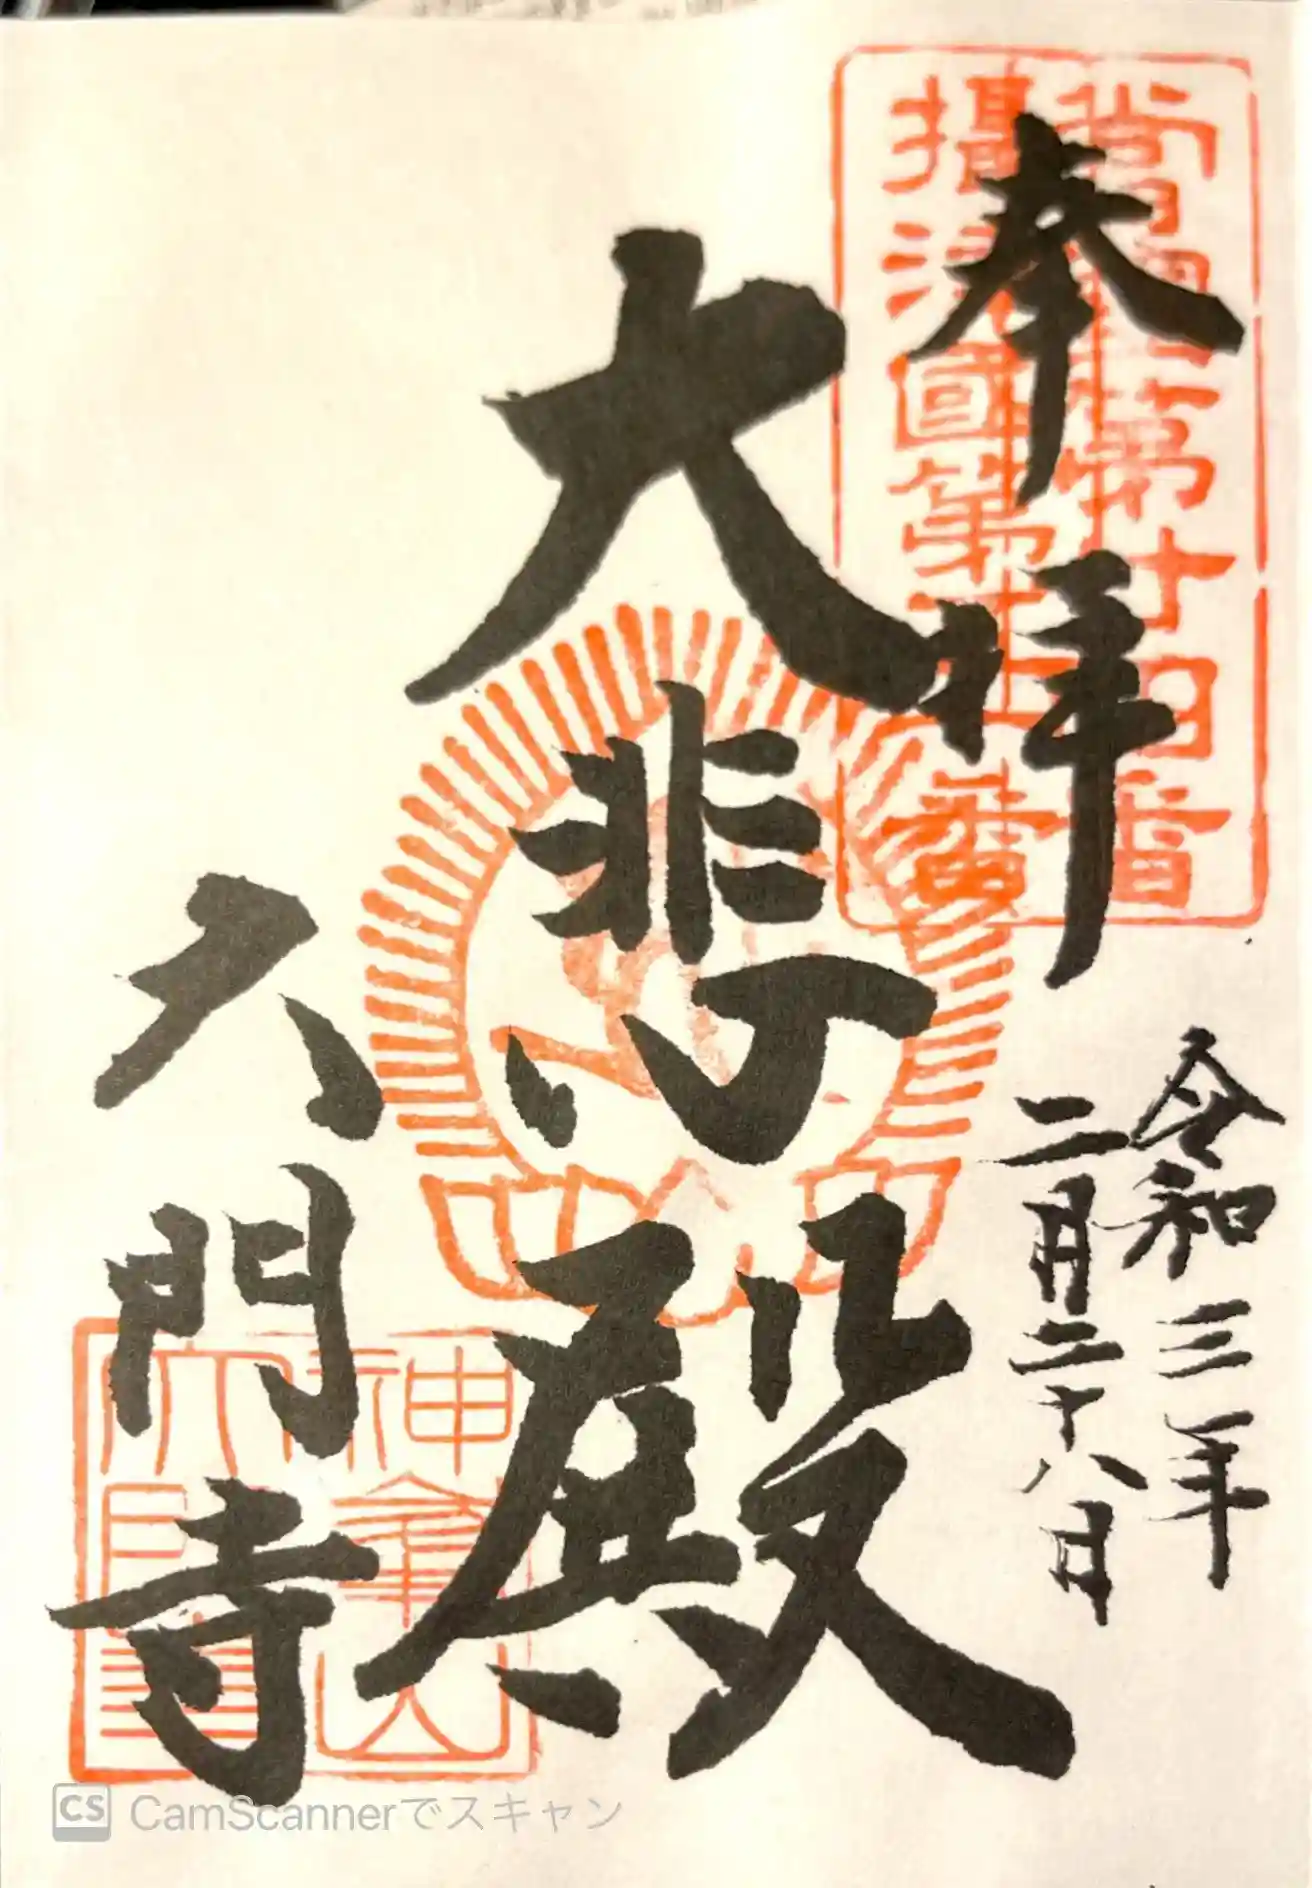 奉拝
令和三年
二月二十八日
大悲殿
六門寺
第十四番
攝津國第
番
神峯山
CamScannerでスキャン